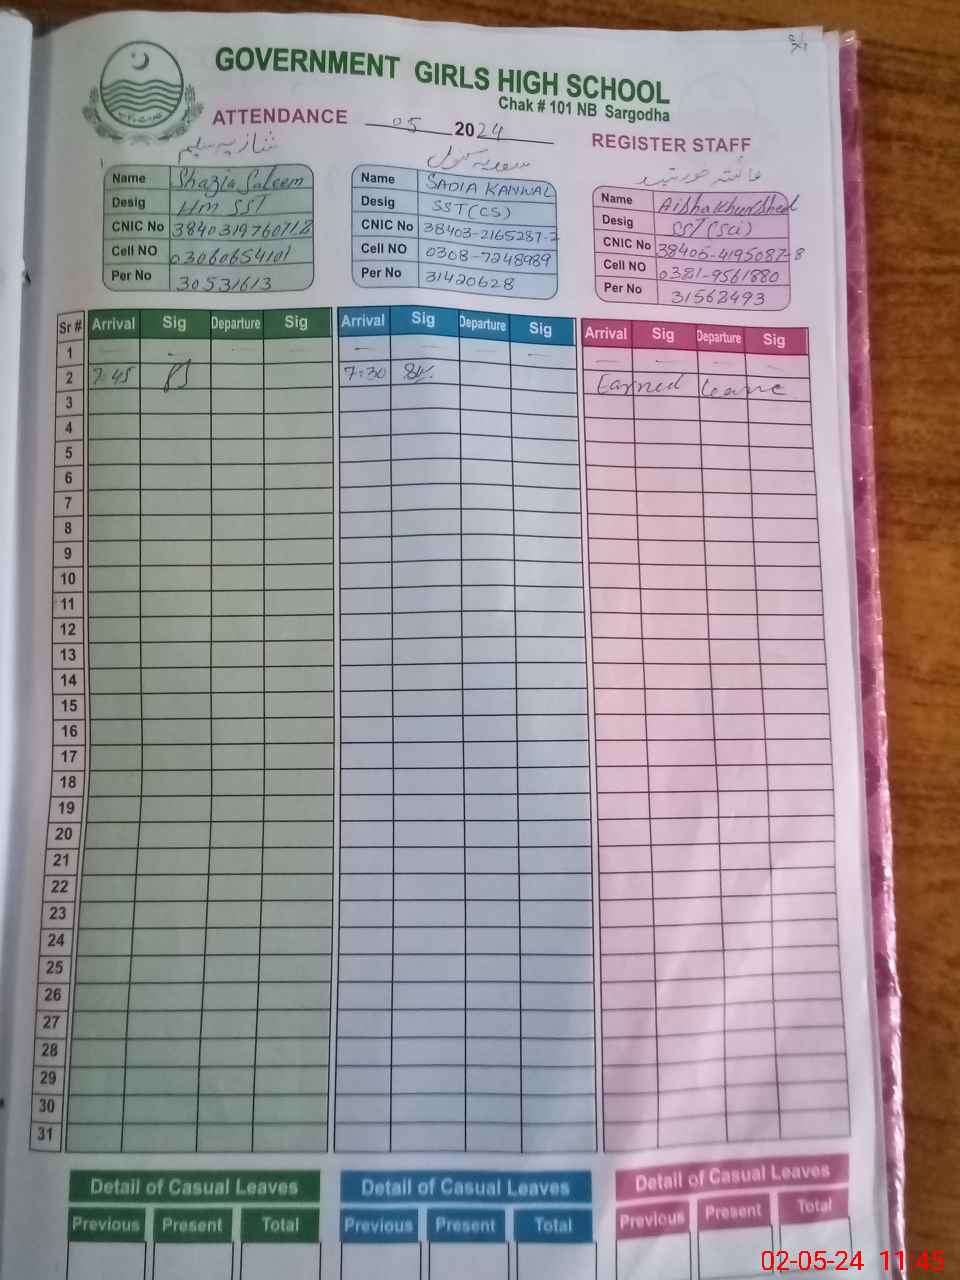 GOVERNMENT GIRLS HIGH SCHOOL
Chak # 101 NB Sargodha
ATTENDANCE 05 2024 REGISTER STAFF
شازیہ سلیم
سعدیہ کنول
عائشہ خورشید
Name Shazia Saleem
Desig HM SST
CNIC No 3840319760718
Cell NO 03060654101
Per No 30531613
Name SADIA KANWAL
Desig SST(CS)
CNIC No 38403-2165287-2
Cell NO 0308-7248989
Per No 31420628
Name Aisha Khurshed
Desig SST(Sci)
CNIC No 38405-4195087-8
Cell NO 0381-9561880
Per No 31562493
Sr # Arrival Sig Departure Sig Arrival Sig Departure Sig Arrival Sig Departure Sig
1 — — — — — — — — — — — —
2 7:45 7:30 Earned leave
3
4
5
6
7
8
9
10
11
12
13
14
15
16
17
18
19
20
21
22
23
24
25
26
27
28
29
30
31
Detail of Casual Leaves Detail of Casual Leaves Detail of Casual Leaves
Previous Present Total Previous Present Total Previous Present Total
02-05-24 11:45